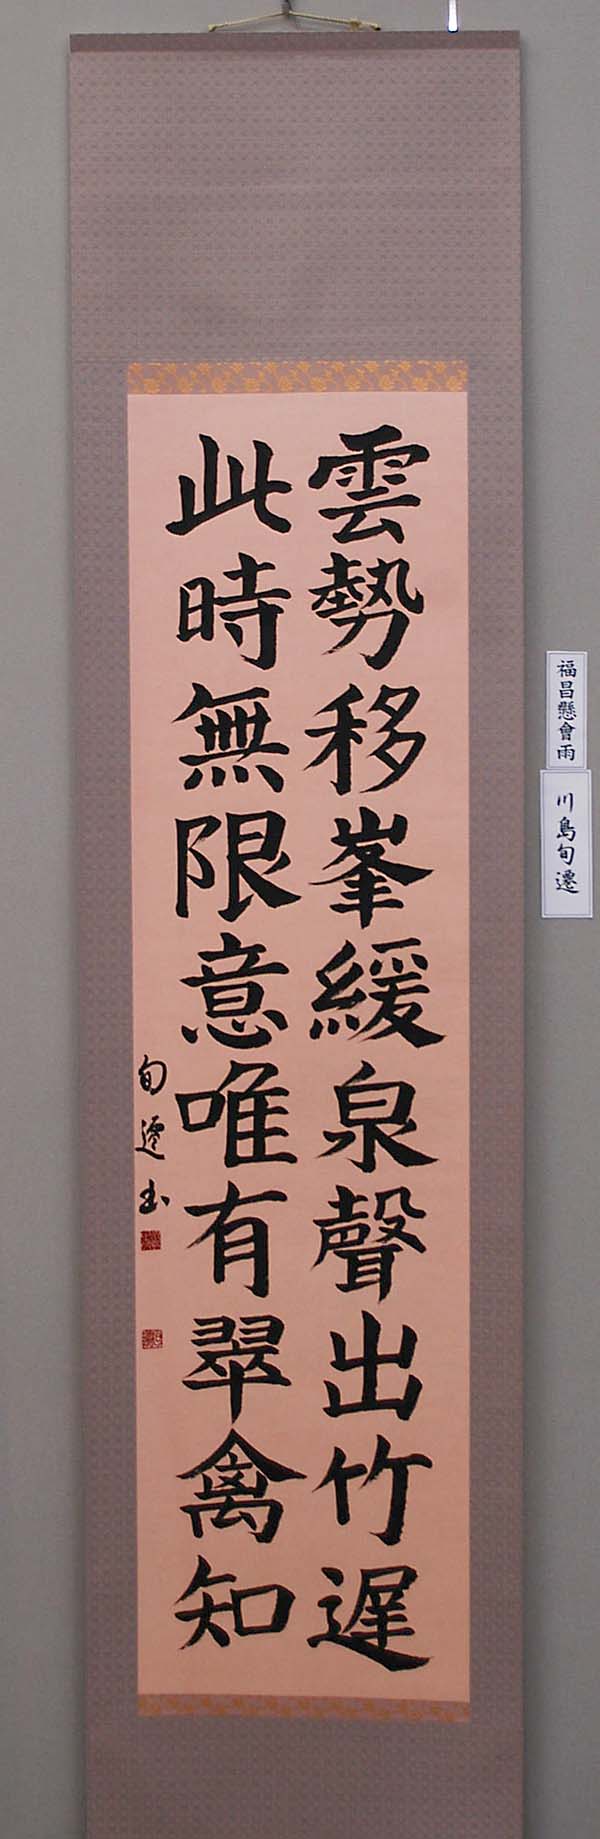 雲勢移峯緩泉聲出竹遲
此時無限意唯有翠禽知
旬遷書
福昌懸會雨
川島旬遷